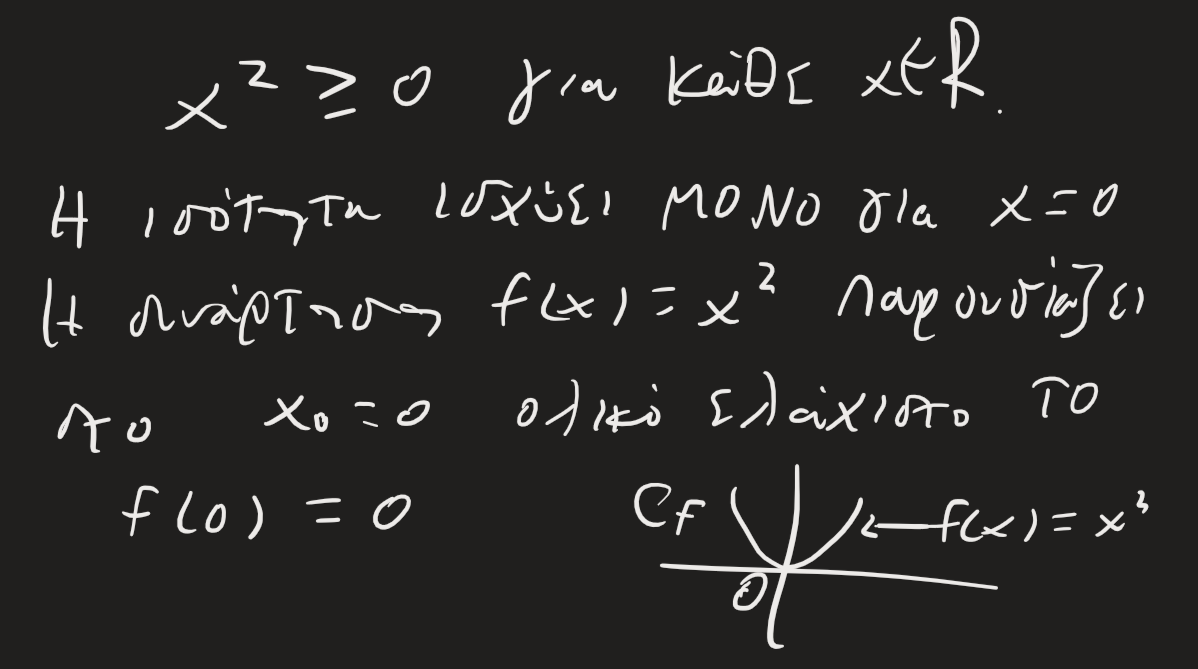 x² ≥ 0 για κάθε x∈R.
Η ισότητα ισχύει ΜΟΝΟ για x=0
Η συνάρτηση f(x) = x² παρουσιάζει
στο x₀ = 0 ολικό ελάχιστο το
f(0) = 0
Cf f(x) = x²
0